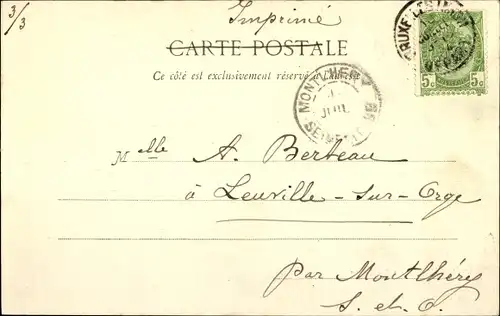 3/3
Imprimé
CARTE POSTALE
Ce côté est exclusivement réservé à l'adresse
BRUXELLES
5c 5c
MONTLHERY
JUIL
Melle A. Berteau
à Leuville-sur-Orge
par Montlhéry
S. et O.